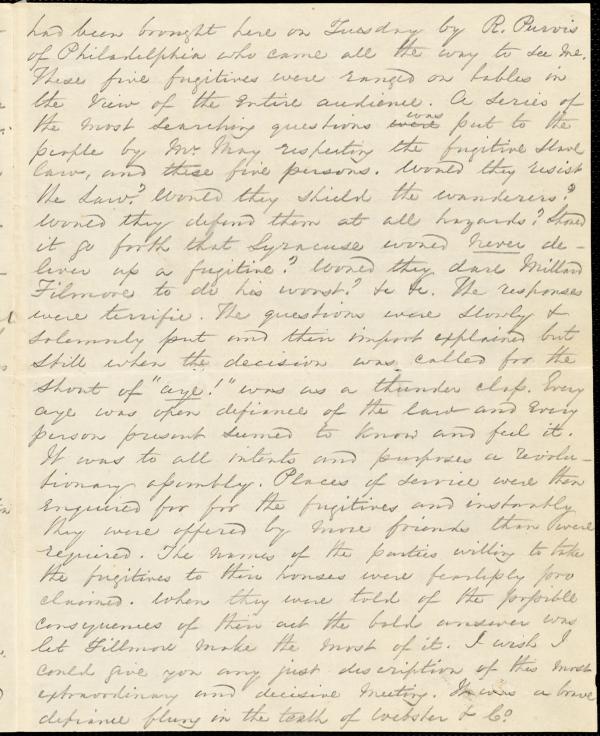 had been brought here on Tuesday by R. Purvis
of Philadelphia who came all the way to see me.
These five fugitives were ranged on tables in
the view of the entire audience. A series of
the most searching questions were was put to the
people by Mr May respecting the fugitive Slave
Law, and these five persons. Would they resist
the Law? Would they shield the wanderers?
Would they defend them at all hazards? Should
it go forth that Syracuse would never de-
liver up a fugitive? Would they dare Millard
Filmore to do his worst? &c &c. The responses
were terrific. The questions were slowly &
solemnly put and their import explained but
still when the decision was called for the
shout of "aye!" was as a thunder clap. Every
aye was open defiance of the law and every
person present seemed to know and feel it.
It was to all intents and purposes a revolu-
tionary assembly. Places of service were then
enquired for for the fugitives and instantly
they were offered by more friends than were
required. The names of the parties willing to take
the fugitives to their houses were fearlessly pro
claimed. When they were told of the possible
consequences of their act the bold answer was
let Fillmore make the most of it. I wish I
could give you any just description of this most
extraordinary and decisive meeting. It was a brave
defiance flung in the teeth of Webster & Co.